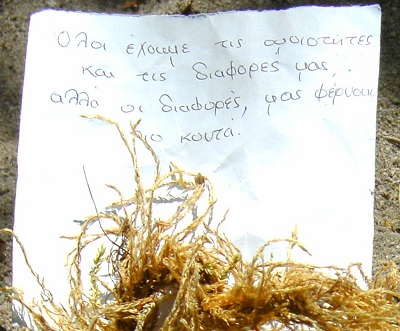 Όλοι έχουμε τις ομοιότητες
και τις διαφορές μας,
αλλά οι διαφορές, μας φέρνουν
πιο κοντά.